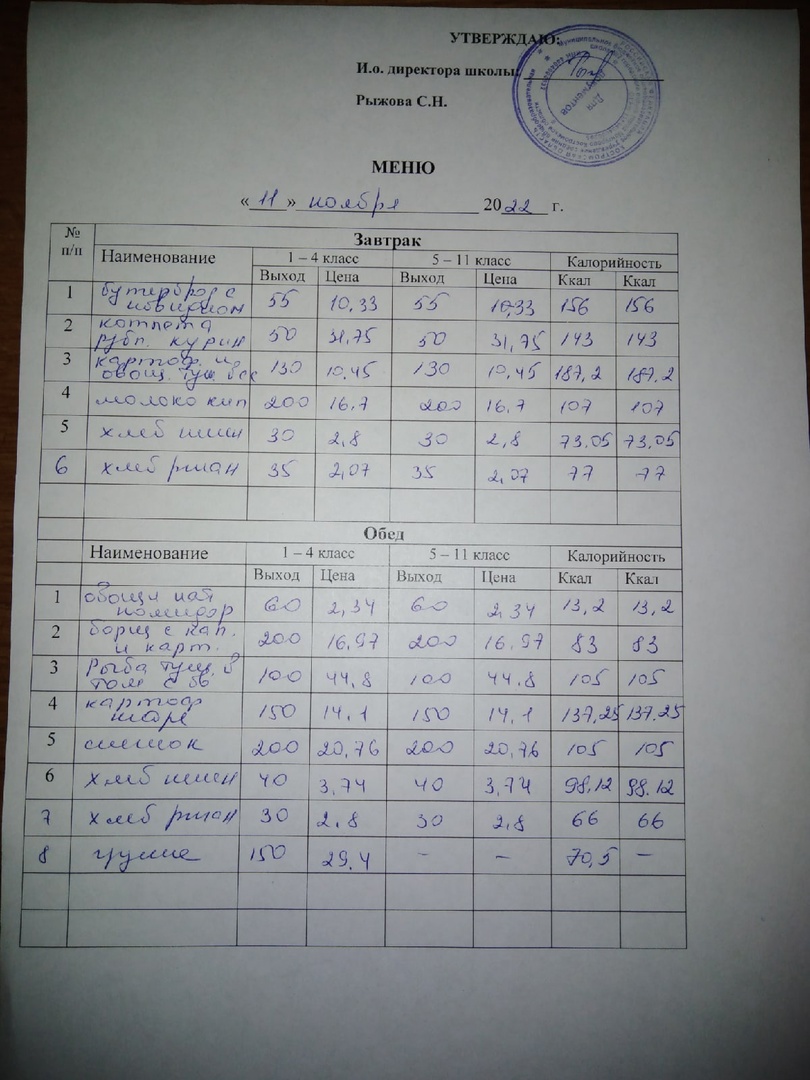 УТВЕРЖДАЮ:
И.о. директора школы:
Рыжова С.Н.
Для документов
МЕНЮ
« 11 » ноября 2022 г.
№ п/п Завтрак
Наименование 1 – 4 класс 5 – 11 класс Калорийность
Выход Цена Выход Цена Ккал Ккал
1 бутерброд с повидлом 55 10,33 55 10,33 156 156
2 котлета рубл. курин 50 31,75 50 31,75 143 143
3 картоф. и овощ. туш. бел 130 10,45 130 10,45 187,2 187.2
4 молоко кип 200 16,7 200 16,7 107 107
5 хлеб пшен 30 2,8 30 2,8 73.05 73,05
6 хлеб ржан 35 2,07 35 2,07 77 77
Обед
Наименование 1 – 4 класс 5 – 11 класс Калорийность
Выход Цена Выход Цена Ккал Ккал
1 овощи нат помидор 60 2,34 60 2,34 13,2 13,2
2 борщ с кап. и карт. 200 16,97 200 16,97 83 83
3 Рыба туш. в том с ов 100 44,8 100 44.8 105 105
4 картоф пюре 150 14,1 150 14,1 137,25 137.25
5 снежок 200 20,76 200 20,76 105 105
6 хлеб пшен 40 3,74 40 3,74 98,12 98.12
7 хлеб ржан 30 2.8 30 2,8 66 66
8 груша 150 29.4 – – 70,5 –